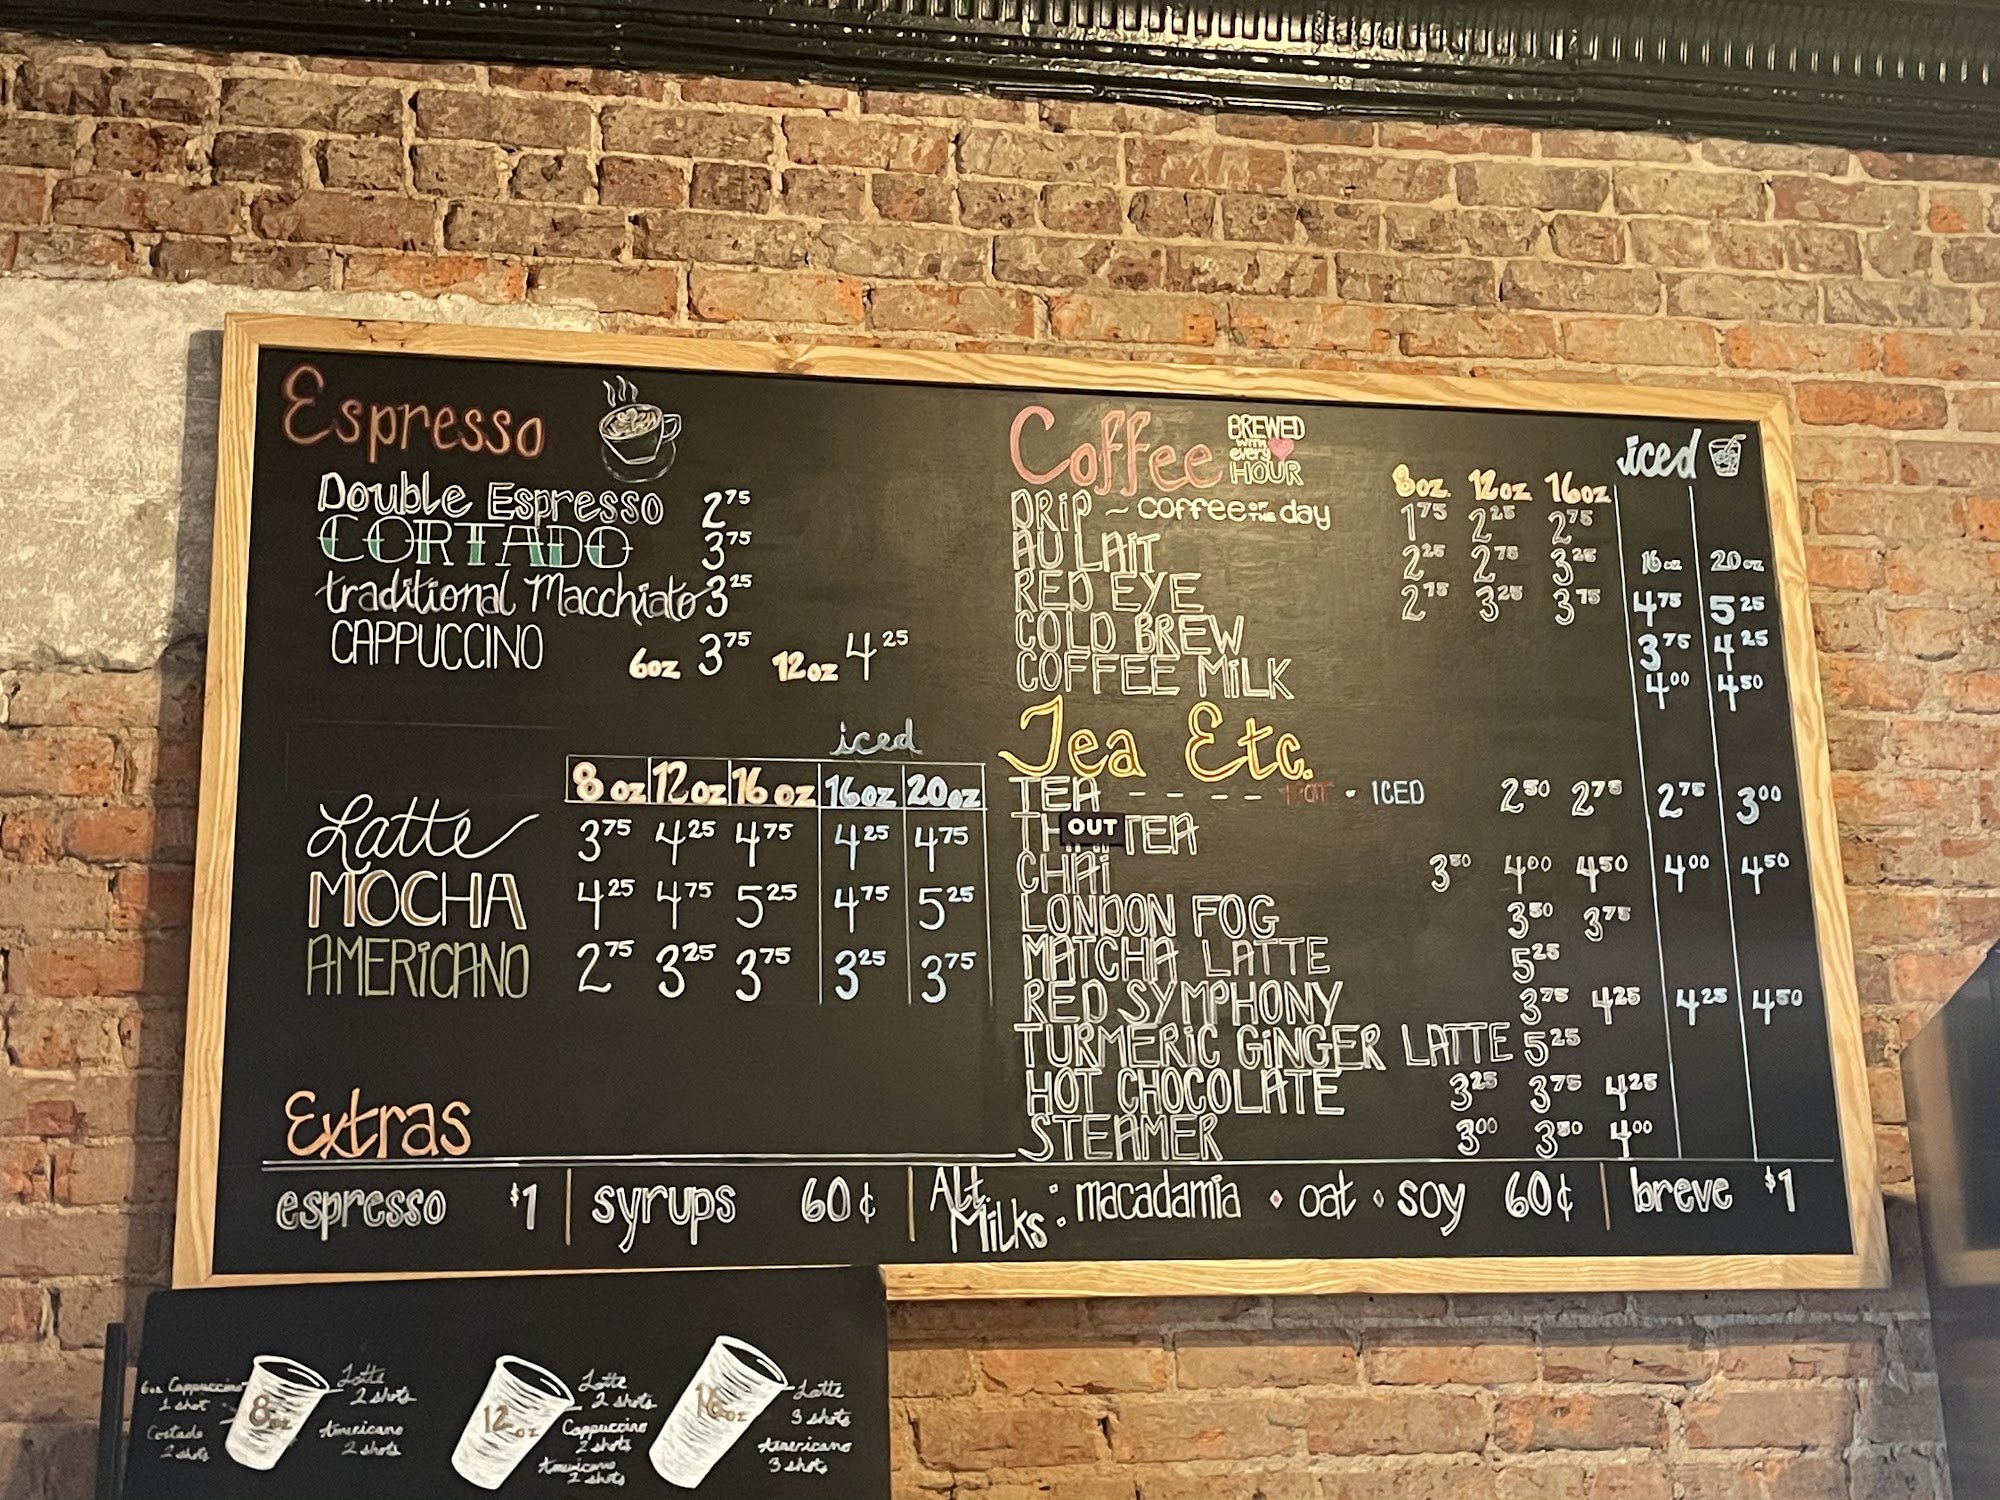 Espresso
Double Espresso 2 75
CORTADO 3 75
traditional Macchiato 3 25
CAPPUCCINO 6oz 3 75 12oz 4 25
iced
8 oz 12 oz 16 oz 16 oz 20 oz
Latte 3 75 4 25 4 75 4 25 4 75
MOCHA 4 25 4 75 5 25 4 75 5 25
AMERiCANO 2 75 3 25 3 75 3 25 3 75
Extras
Coffee BREWED with every HOUR
iced
8oz. 12oz 16oz
DRiP ~ coffee OF THE day 1 75 2 25 2 75
AU LAiT 2 25 2 75 3 25 16 oz 20 oz
RED EYE 2 75 3 25 3 75 4 75 5 25
COLD BREW 3 75 4 25
COFFEE MiLK 4 00 4 50
Tea Etc.
TEA - - - - HOT - ICED 2 50 2 75 2 75 3 00
OUT TEA
CHAi 3 50 4 00 4 50 4 00 4 50
LONDON FOG 3 50 3 75
MATCHA LATTE 5 25
RED SYMPHONY 3 75 4 25 4 25 4 50
TURMERiC GiNGER LATTE 5 25
HOT CHOCOLATE 3 25 3 75 4 25
STEAMER 3 00 3 50 4 00
espresso $1 | syrups 60¢ | Alt. Milks: macadamia oat soy 60¢ | breve $1
6oz Cappuccino
1 shot
Cortado
2 shots
8oz
Latte
2 shots
Americano
2 shots
12oz
Latte
2 shots
Cappuccino
2 shots
Americano
2 shots
16oz
Latte
3 shots
Americano
3 shots